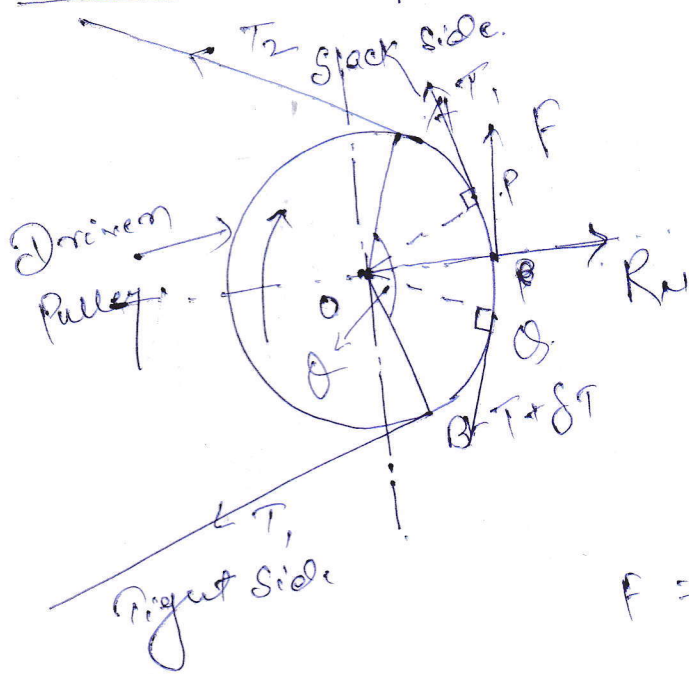 T2
Slack side.
T,
F
A
P
Driven
Pulley
O
RN
θ
Q.
B T + δT
T,
Tight side
F =